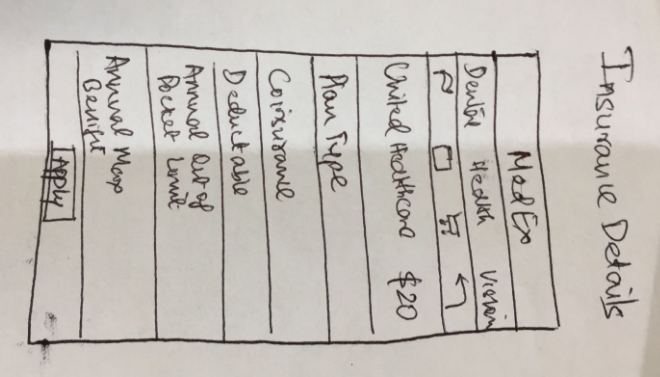 Insurance Details
MedEx
Dental Health Vision
United Healthcare $20
Plan Type
Coinsurance
Deductable
Annual Out of
Pocket Limit
Annual Max
Benifit
Apply